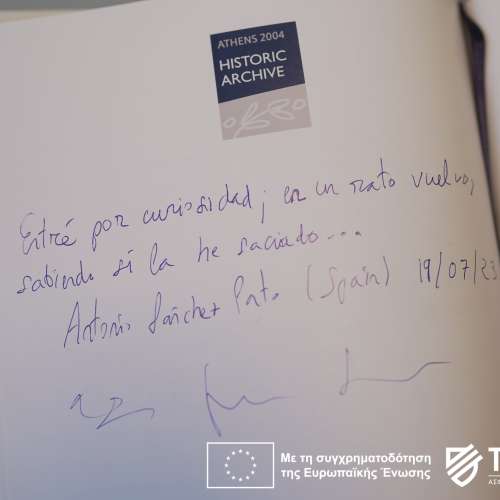 ATHENS 2004
HISTORIC
ARCHIVE
Entré por curiosidad; en un rato vuelvo,
sabiendo si la he saciado...
Antonio Sánchez (Spain) 19/07/23
Με τη συγχρηματοδότηση
της Ευρωπαϊκής Ένωσης